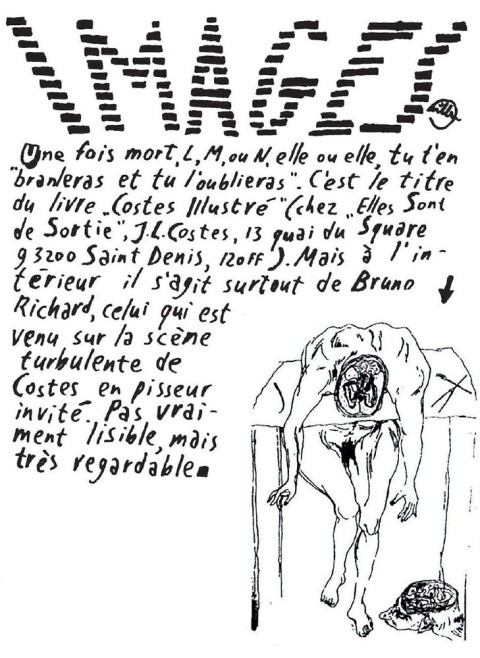 IMAGES
Une fois mort, L, M, ou N, elle ou elle, tu t'en
"branleras et tu l'oublieras". C'est le titre
du livre „Costes Illustré" (chez „Elles Sont
de Sortie", J.L.Costes, 13 quai du Square
93200 Saint Denis, 120FF). Mais à l'in-
térieur il s'agit surtout de Bruno
Richard, celui qui est
venu sur la scène
turbulente de
Costes en pisseur
invité. Pas vrai-
ment lisible, mais
très regardable